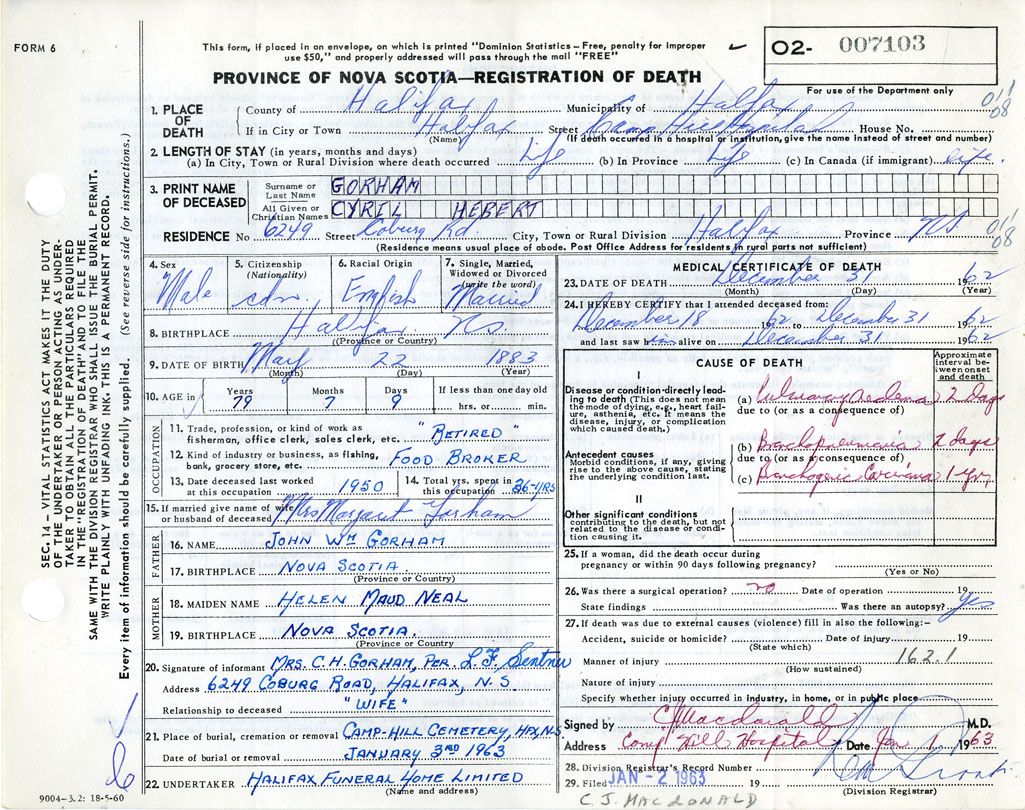 FORM 6
This form, if placed in an envelope, on which is printed "Dominion Statistics – Free, penalty for improper
use $50," and properly addressed will pass through the mail "FREE"
02- 007103
For use of the Department only
PROVINCE OF NOVA SCOTIA—REGISTRATION OF DEATH
SEC. 14 – VITAL STATISTICS ACT MAKES IT THE DUTY
OF THE UNDERTAKER OR PERSON ACTING AS UNDER-
TAKER TO OBTAIN ALL THE PARTICULARS REQUIRED
IN THE "REGISTRATION OF DEATH" AND TO FILE THE
SAME WITH THE DIVISION REGISTRAR WHO SHALL ISSUE THE BURIAL PERMIT.
WRITE PLAINLY WITH UNFADING INK. THIS IS A PERMANENT RECORD.
Every item of information should be carefully supplied. (See reverse side for instructions.)
1. PLACE OF DEATH
County of Halifax Municipality of Halifax
If in City or Town Halifax Street Camp Hill Hospital House No.
(Name) (If death occurred in a hospital or institution, give the name instead of street and number)
01
08
2. LENGTH OF STAY (in years, months and days)
(a) In City, Town or Rural Division where death occurred Life (b) In Province Life (c) In Canada (if immigrant) Life
3. PRINT NAME OF DECEASED
Surname or Last Name GORHAM
All Given or Christian Names CYRIL HEBERT
RESIDENCE No 6249 Street Coburg Rd. City, Town or Rural Division Halifax Province N.S.
(Residence means usual place of abode. Post Office Address for residents in rural parts not sufficient)
01
08
4. Sex Male
5. Citizenship (Nationality) cdn.
6. Racial Origin English
7. Single, Married, Widowed or Divorced (write the word) Married
8. BIRTHPLACE Halifax N.S.
(Province or Country)
9. DATE OF BIRTH May 22 1883
(Month) (Day) (Year)
10. AGE in Years 79 Months 7 Days 9 If less than one day old hrs. or min.
OCCUPATION
11. Trade, profession, or kind of work as
fisherman, office clerk, sales clerk, etc. "RETIRED"
12. Kind of industry or business, as fishing,
bank, grocery store, etc. FOOD BROKER
13. Date deceased last worked at this occupation 1950
14. Total yrs. spent in this occupation 36-YRS
15. If married give name of wife or husband of deceased Mrs Margaret Gorham
FATHER
16. NAME JOHN WM GORHAM
17. BIRTHPLACE NOVA SCOTIA
(Province or Country)
MOTHER
18. MAIDEN NAME HELEN MAUD NEAL
19. BIRTHPLACE NOVA SCOTIA.
(Province or Country)
20. Signature of informant MRS. C.H. GORHAM, PER. L.F. Sentner
Address 6249 COBURG ROAD, HALIFAX, N.S.
Relationship to deceased "WIFE"
21. Place of burial, cremation or removal CAMP-HILL CEMETERY, HFX, N.S
Date of burial or removal JANUARY 3RD 1963
22. UNDERTAKER HALIFAX FUNERAL HOME LIMITED
(Name and address)
9004–3.2: 18-5-60
MEDICAL CERTIFICATE OF DEATH
23. DATE OF DEATH December 31 1962
(Month) (Day) (Year)
24. I HEREBY CERTIFY that I attended deceased from:
December 18 1962 to December 31 1962
and last saw him alive on December 31 1962
CAUSE OF DEATH
Approximate interval between onset and death
I
Disease or condition directly lead-
ing to death (This does not mean
the mode of dying, e.g., heart fail-
ure, asthenia, etc. It means the
disease, injury, or complication
which caused death.)
(a) Pulmonary Oedema 2 Days
due to (or as a consequence of)
Antecedent causes
Morbid conditions, if any, giving
rise to the above cause, stating
the underlying condition last.
(b) Bronchopneumonia 2 days
due to (or as a consequence of)
(c) Bronchogenic Carcinoma 1 yr.
II
Other significant conditions
contributing to the death, but not
related to the disease or condi-
tion causing it.
25. If a woman, did the death occur during
pregnancy or within 90 days following pregnancy?
(Yes or No)
26. Was there a surgical operation? no Date of operation 19
State findings Was there an autopsy? Yes
27. If death was due to external causes (violence) fill in also the following:–
Accident, suicide or homicide? Date of injury 19
(State which)
Manner of injury 162.1
(How sustained)
Nature of injury
Specify whether injury occurred in industry, in home, or in public place
Signed by C J Macdonald M.D.
Address Camp Hill Hospital Date Jan 1 1963
28. Division Registrar's Record Number
29. Filed JAN - 2 1963 19
(Division Registrar)
C. J. MACDONALD